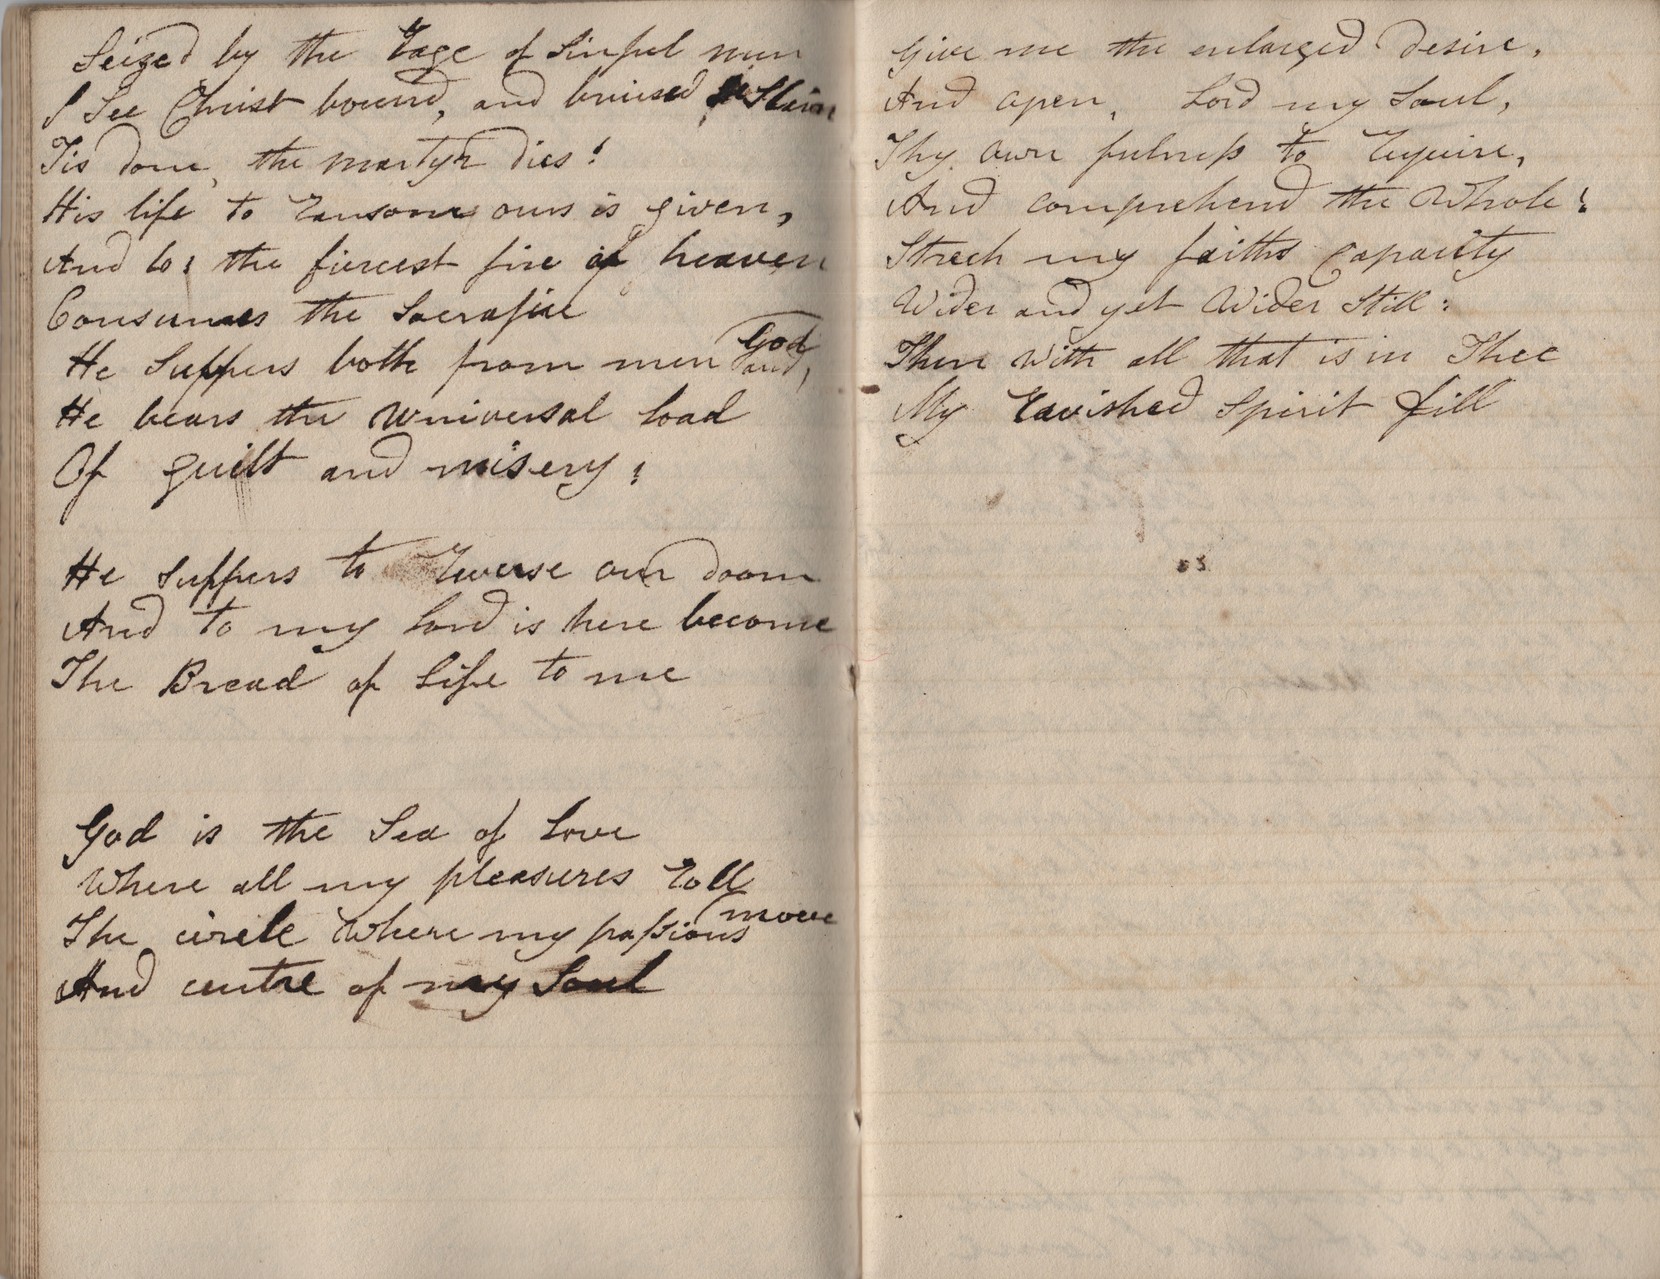 Seized by the rage of Sinful men
I See Christ bound, and bruised & Slain
Tis done, the martyr dies!
His life to ransom ours is given,
And lo! the fiercest fire of heaven
Consumes the Sacrafice
He Suffers both from men and God,
He bears the universal load
Of guilt and misery!
He Suffers to reverse our doom
And to my Lord is here become
The Bread of Life to me
God is the Sea of Love
Where all my pleasures roll
The circle Where my passions move
And centre of my Soul
Give me the enlarged desire,
And open, Lord my Soul,
Thy own fulness to require,
And comprehend the Whole!
Strech my faiths capacity
Wider and yet Wider Still:
Then With all that is in Thee
My ravished Spirit fill